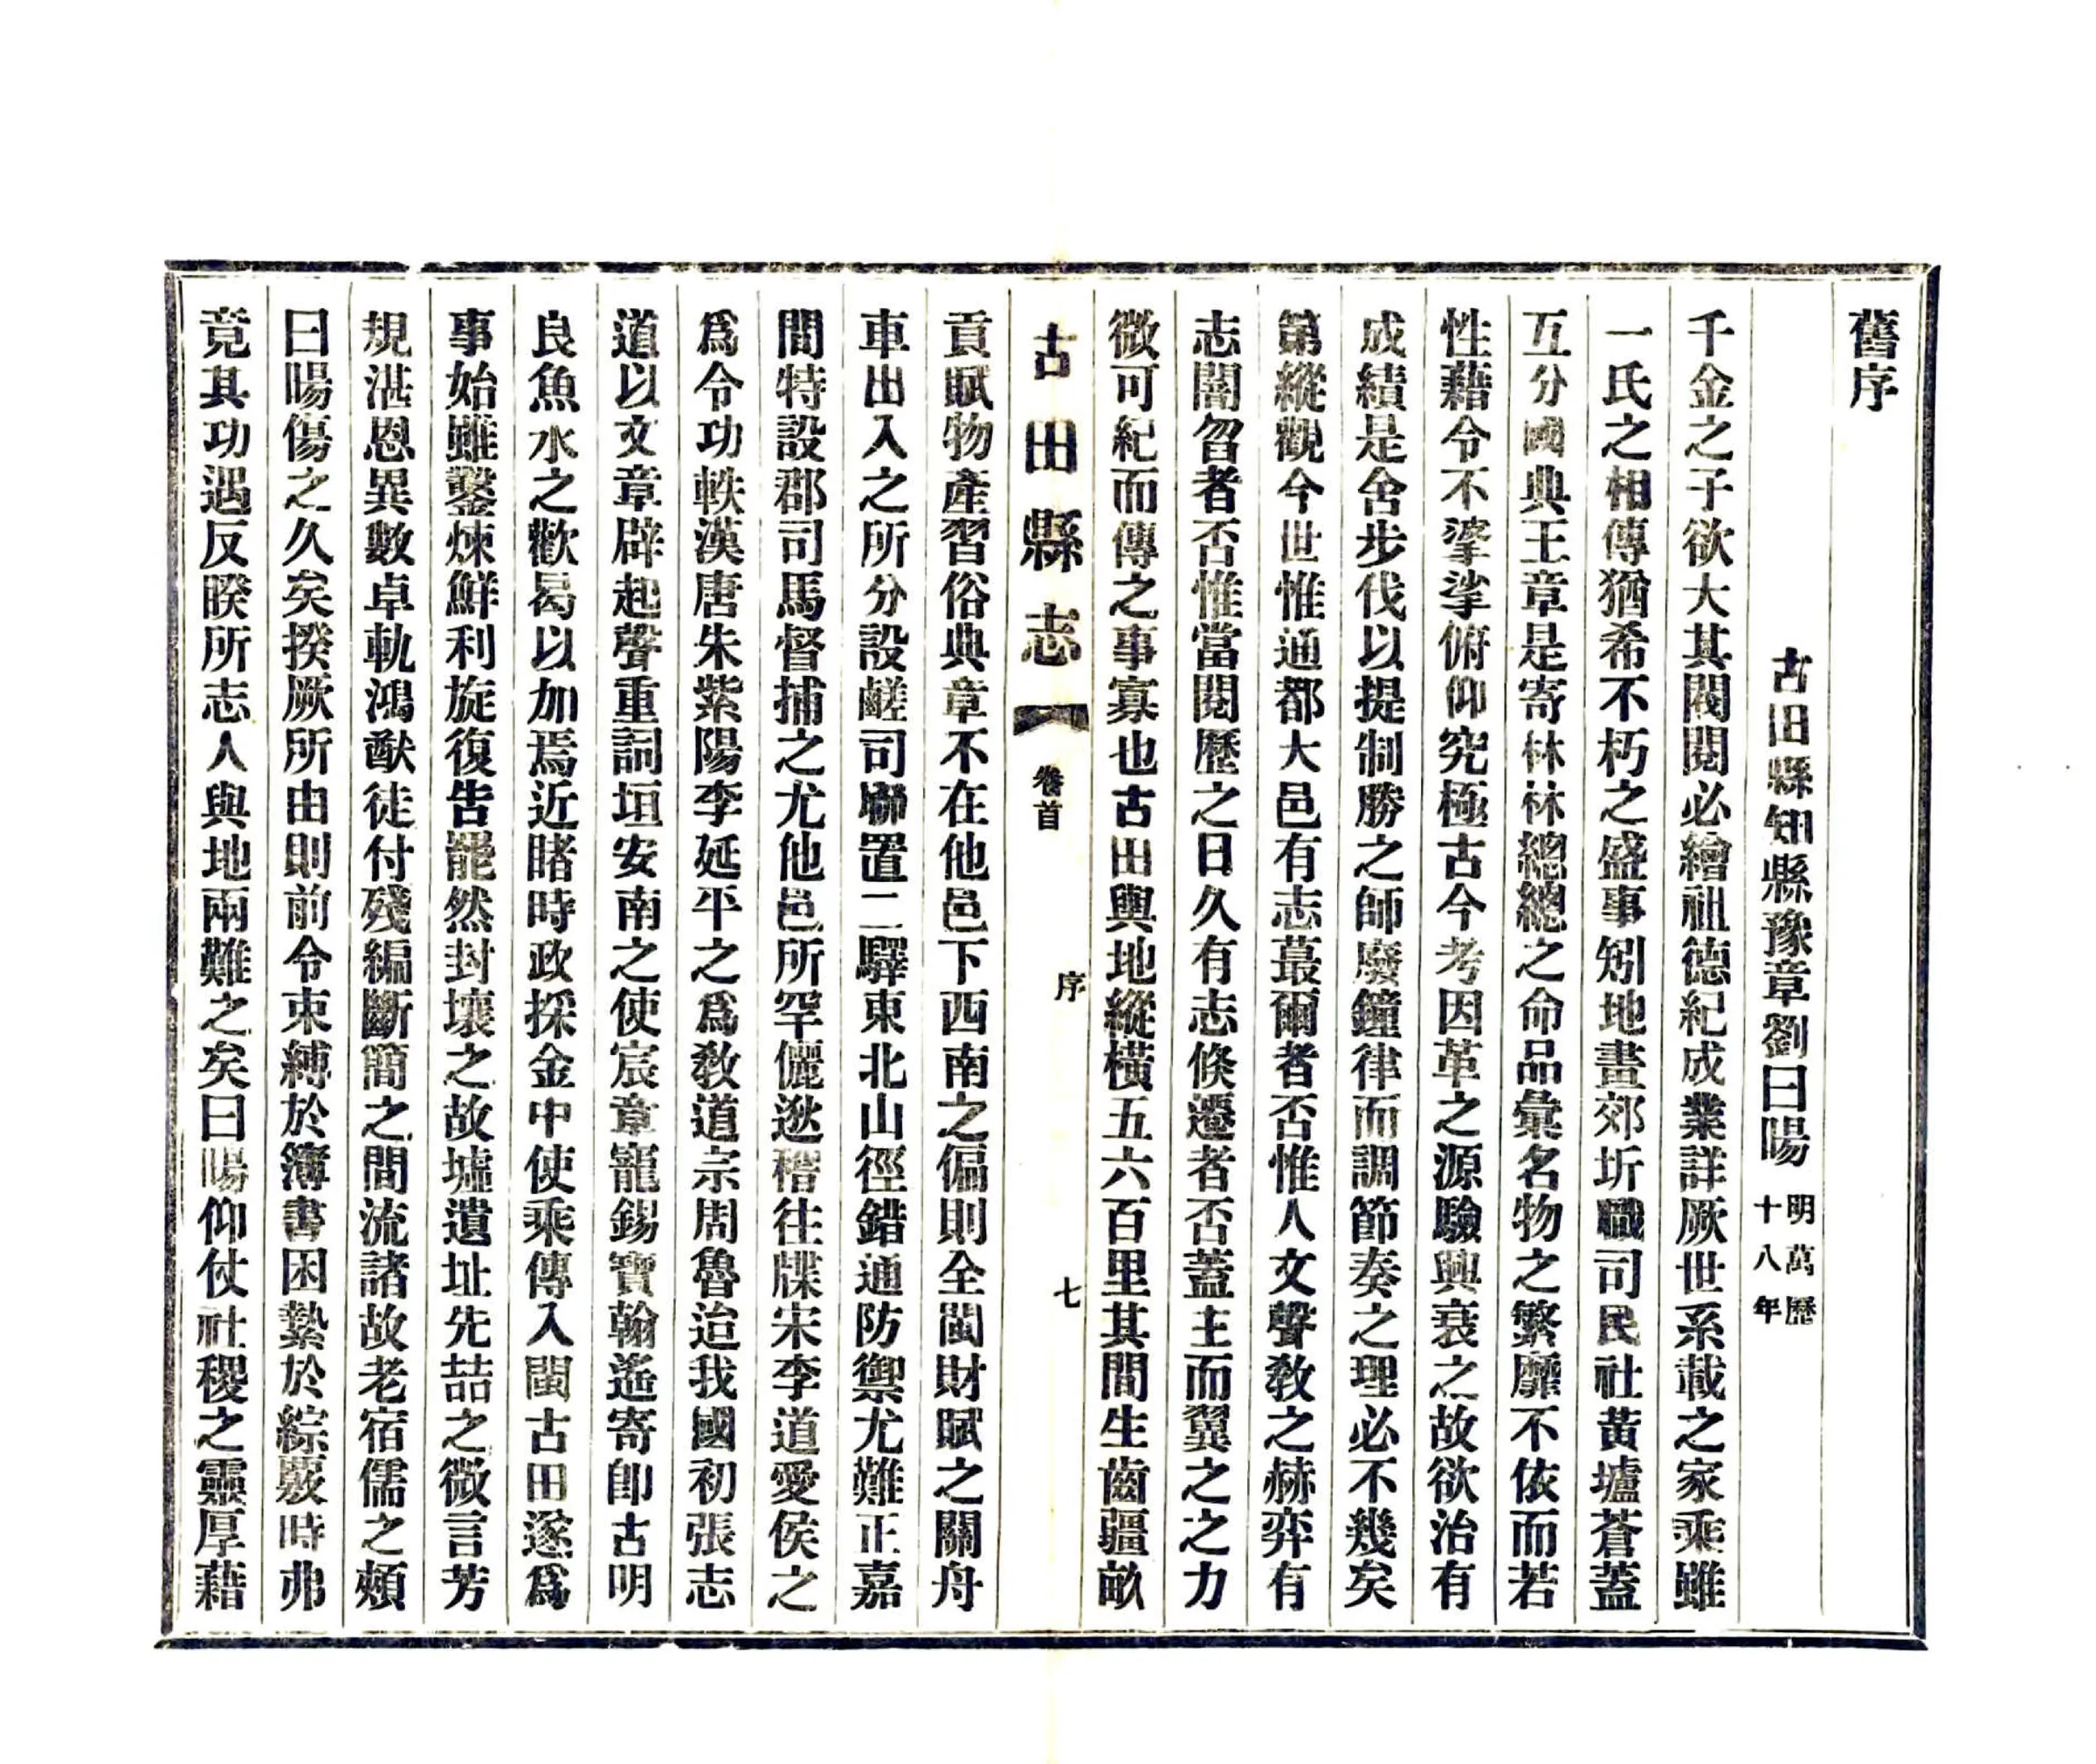 舊序
古田縣知縣豫章劉曰暘 明萬歷十八年
千金之子欲大其閥閱必繪祖德紀成業詳厥世系載之家乘雖
一氏之相傳猶希不朽之盛事矧地畫郊圻職司民社黃壚蒼蓋
互分國典王章是寄林林總總之命品彙名物之繁靡不依而若
性藉令不挲挲俯仰究極古今考因革之源驗興衰之故欲治有
成績是舍步伐以提制勝之師廢鐘律而調節奏之理必不幾矣
第縱觀今世惟通都大邑有志蕞爾者否惟人文聲教之赫弈有
志闇曶者否惟當閱歷之日久有志倏遷者否蓋主而翼之之力
微可紀而傳之事寡也古田輿地縱橫五六百里其間生齒疆畝
古田縣志 卷首 序 七
貢賦物產習俗典章不在他邑下西南之偏則全閩財賦之關舟
車出入之所分設鹺司聯置二驛東北山徑錯通防禦尤難正嘉
間特設郡司馬督捕之尤他邑所罕儷逖稽往牒宋李道愛侯之
爲令功軼漢唐朱紫陽李延平之爲教道宗周魯迨我國初張志
道以文章辟起聲重詞垣安南之使宸章寵錫寶翰遙寄卽古明
良魚水之歡曷以加焉近睹時政採金中使乘傳入閩古田遂爲
事始雖鑿煉鮮利旋復告罷然封壤之故墟遺址先喆之微言芳
規湛恩異數卓軌鴻猷徒付殘編斷簡之間流諸故老宿儒之頰
曰暘傷之久矣揆厥所由則前令束縛於簿書困縶於綜覈時弗
竟其功遇反睽所志人與地兩難之矣曰暘仰仗社稷之靈厚藉